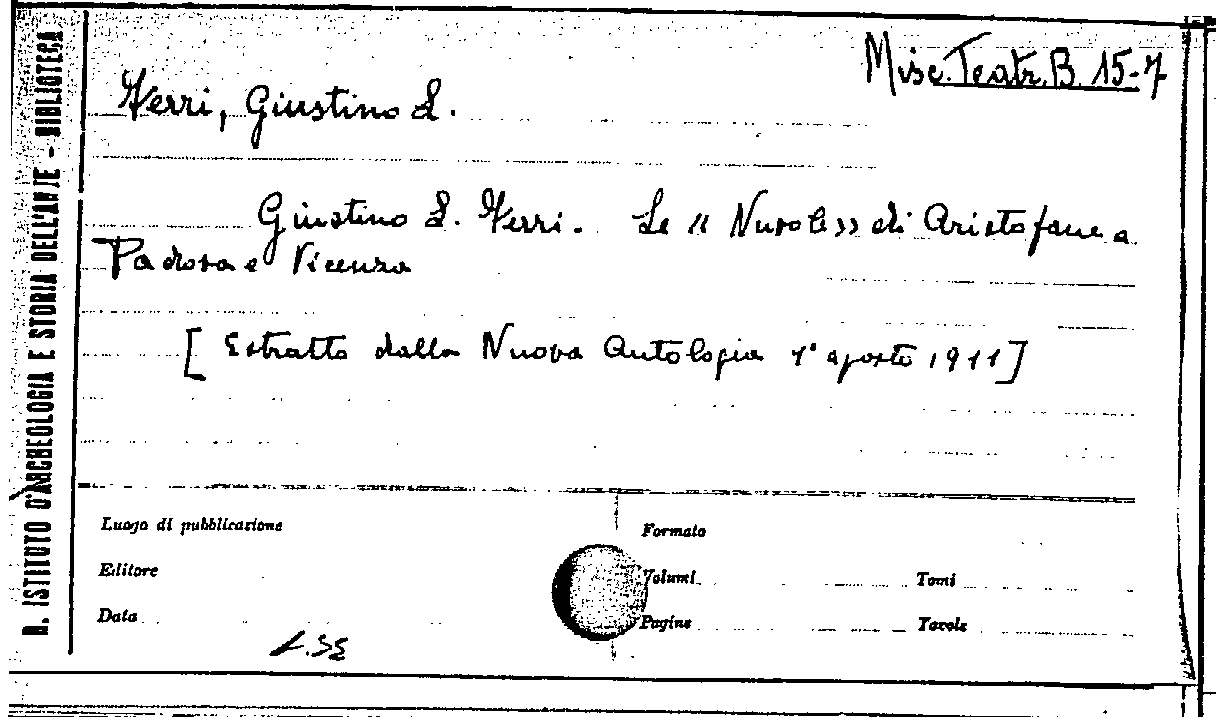 R. ISTITUTO D'ARCHEOLOGIA E STORIA DELL'ARTE - BIBLIOTECA
Misc. Teatr. B. 15-7
Ferri, Giustino L.
Giustino L. Ferri. Le « Nuvole» di Aristofane a
Padova e Vicenza
[Estratto dalla Nuova Antologia 1° agosto 1911]
Luogo di pubblicazione
Formato
Editore
Volumi
Tomi
Data
Pagine
Tavole